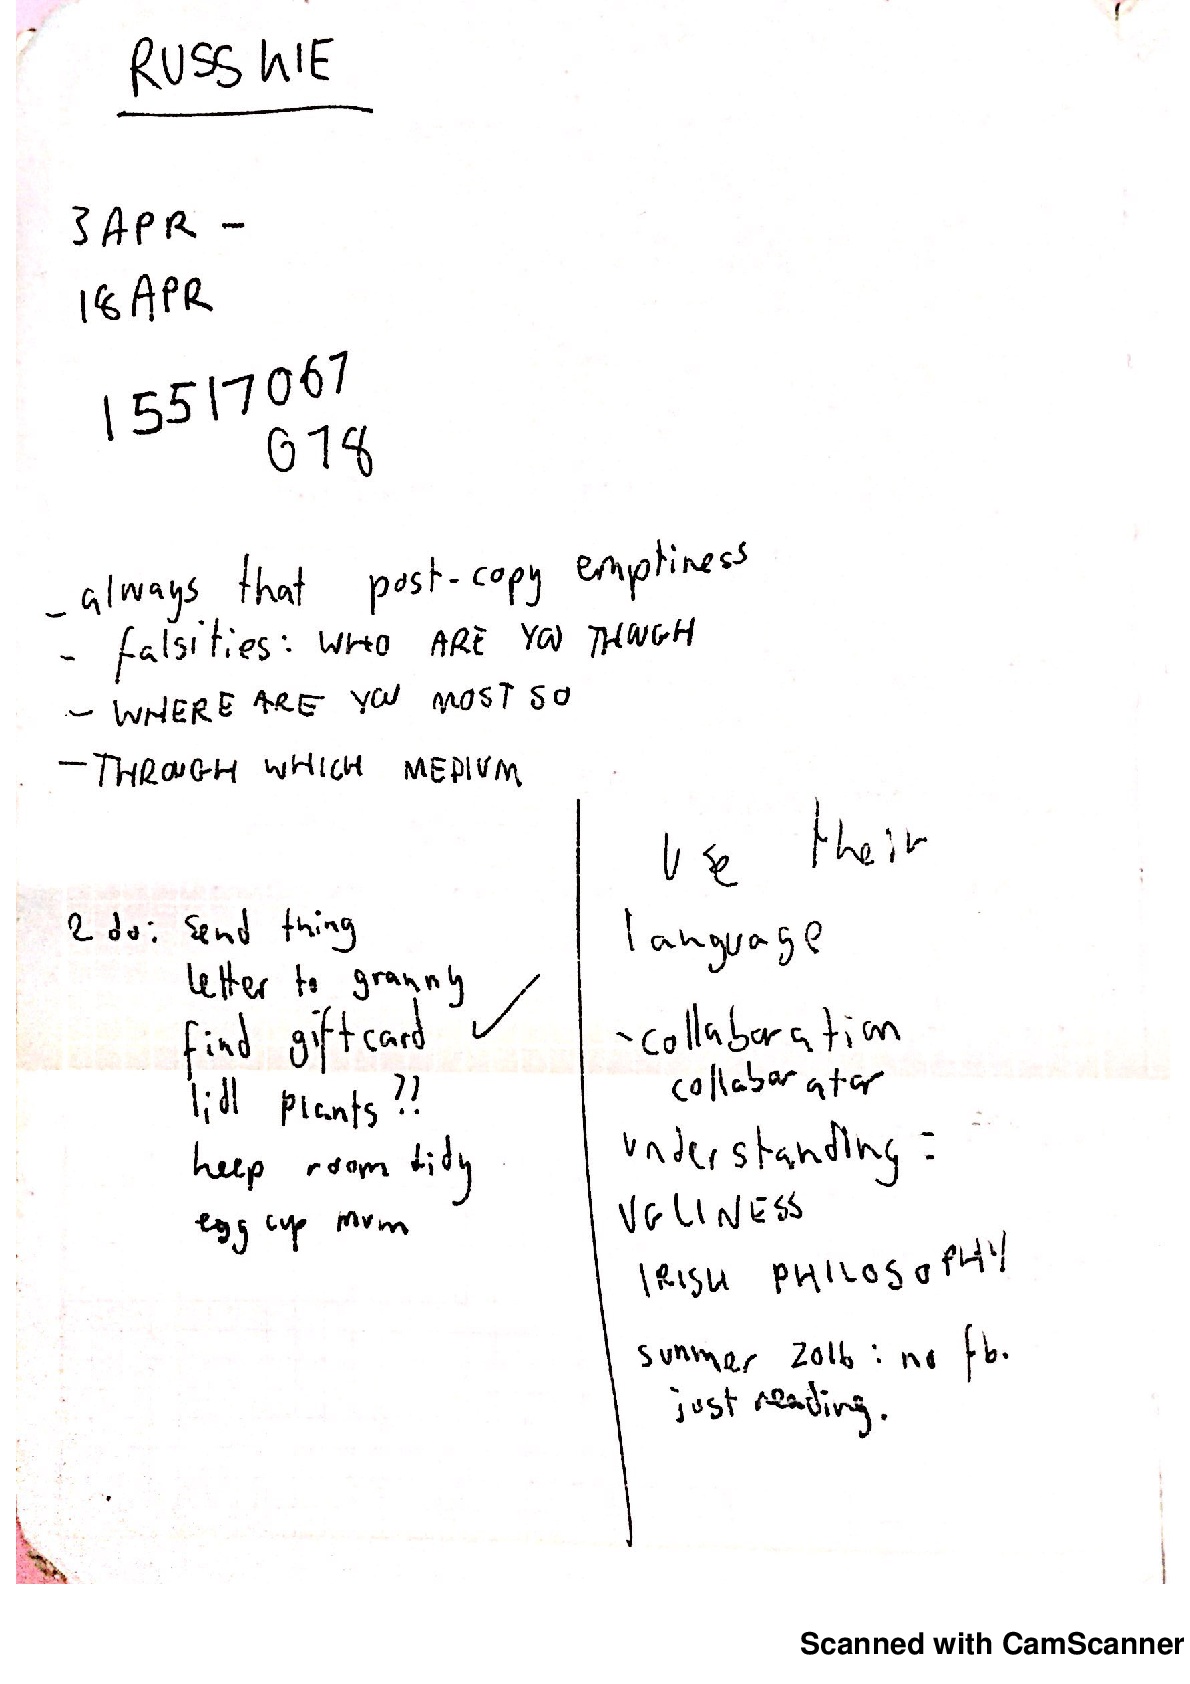 RUSSKIE
3 APR -
18 APR
15517067
678
- always that post-copy emptiness
- falsities: WHO ARE YOU THOUGH
- WHERE ARE YOU MOST SO
- THROUGH WHICH MEDIUM
2 do: send thing
letter to granny
find giftcard ✓
lidl plants??
keep room tidy
egg cup mum
Use their
language
- collaboration
collaborator
understanding =
UGLINESS
IRISH PHILOSOPHY
summer 2016: no fb.
just reading.
Scanned with CamScanner